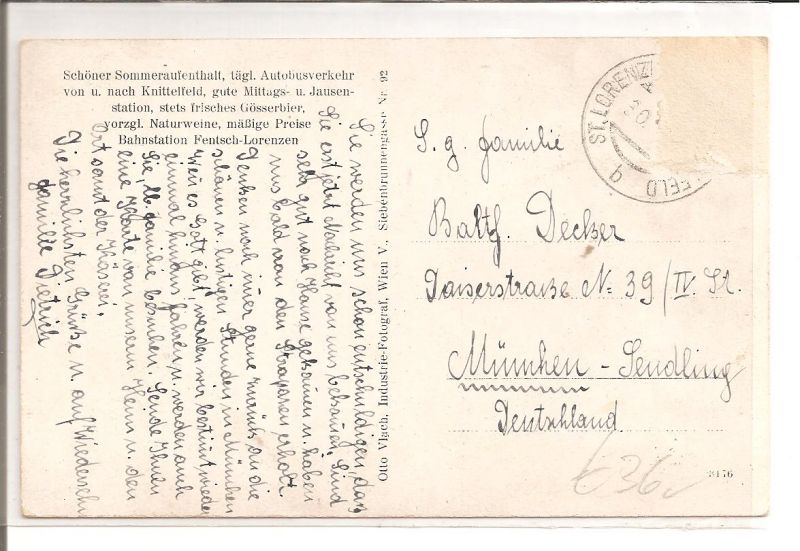 Schöner Sommeraufenthalt, tägl. Autobusverkehr
von u. nach Knittelfeld, gute Mittags- u. Jausen-
station, stets frisches Gösserbier,
vorzgl. Naturweine, mäßige Preise
Bahnstation Fentsch-Lorenzen
Sie werden uns schon entschuldigen, das
Sie erst jetzt Nachricht von uns bekommen. Sind
sehr gut nach Hause gekommen u. haben
uns bald von den Strapazen erholt.
Denken noch imer gerne zurück an die
schönen u. lustigen Stunden in München
wen es Gott gibt, werden wir bestimt wieder
einmal hinaus fahren u. werden auch
Sie, lb. Familie besuchen. Sende Ihnen
eine Karte von unserm Heim u. den
Ort samt der Käserei.
Die herzlichsten Grüße u. auf Wiedersehn
Familie Dietrich
Otto Vlach, Industrie-Fotograf, Wien V., Siebenbrunnengasse Nr. 92
ST. LORENZ
FELD
S. g. Familie
Balth. Decker
Daiserstraße N: 39/IV. St.
München - Sendling
Deutschland
3176
€ 36